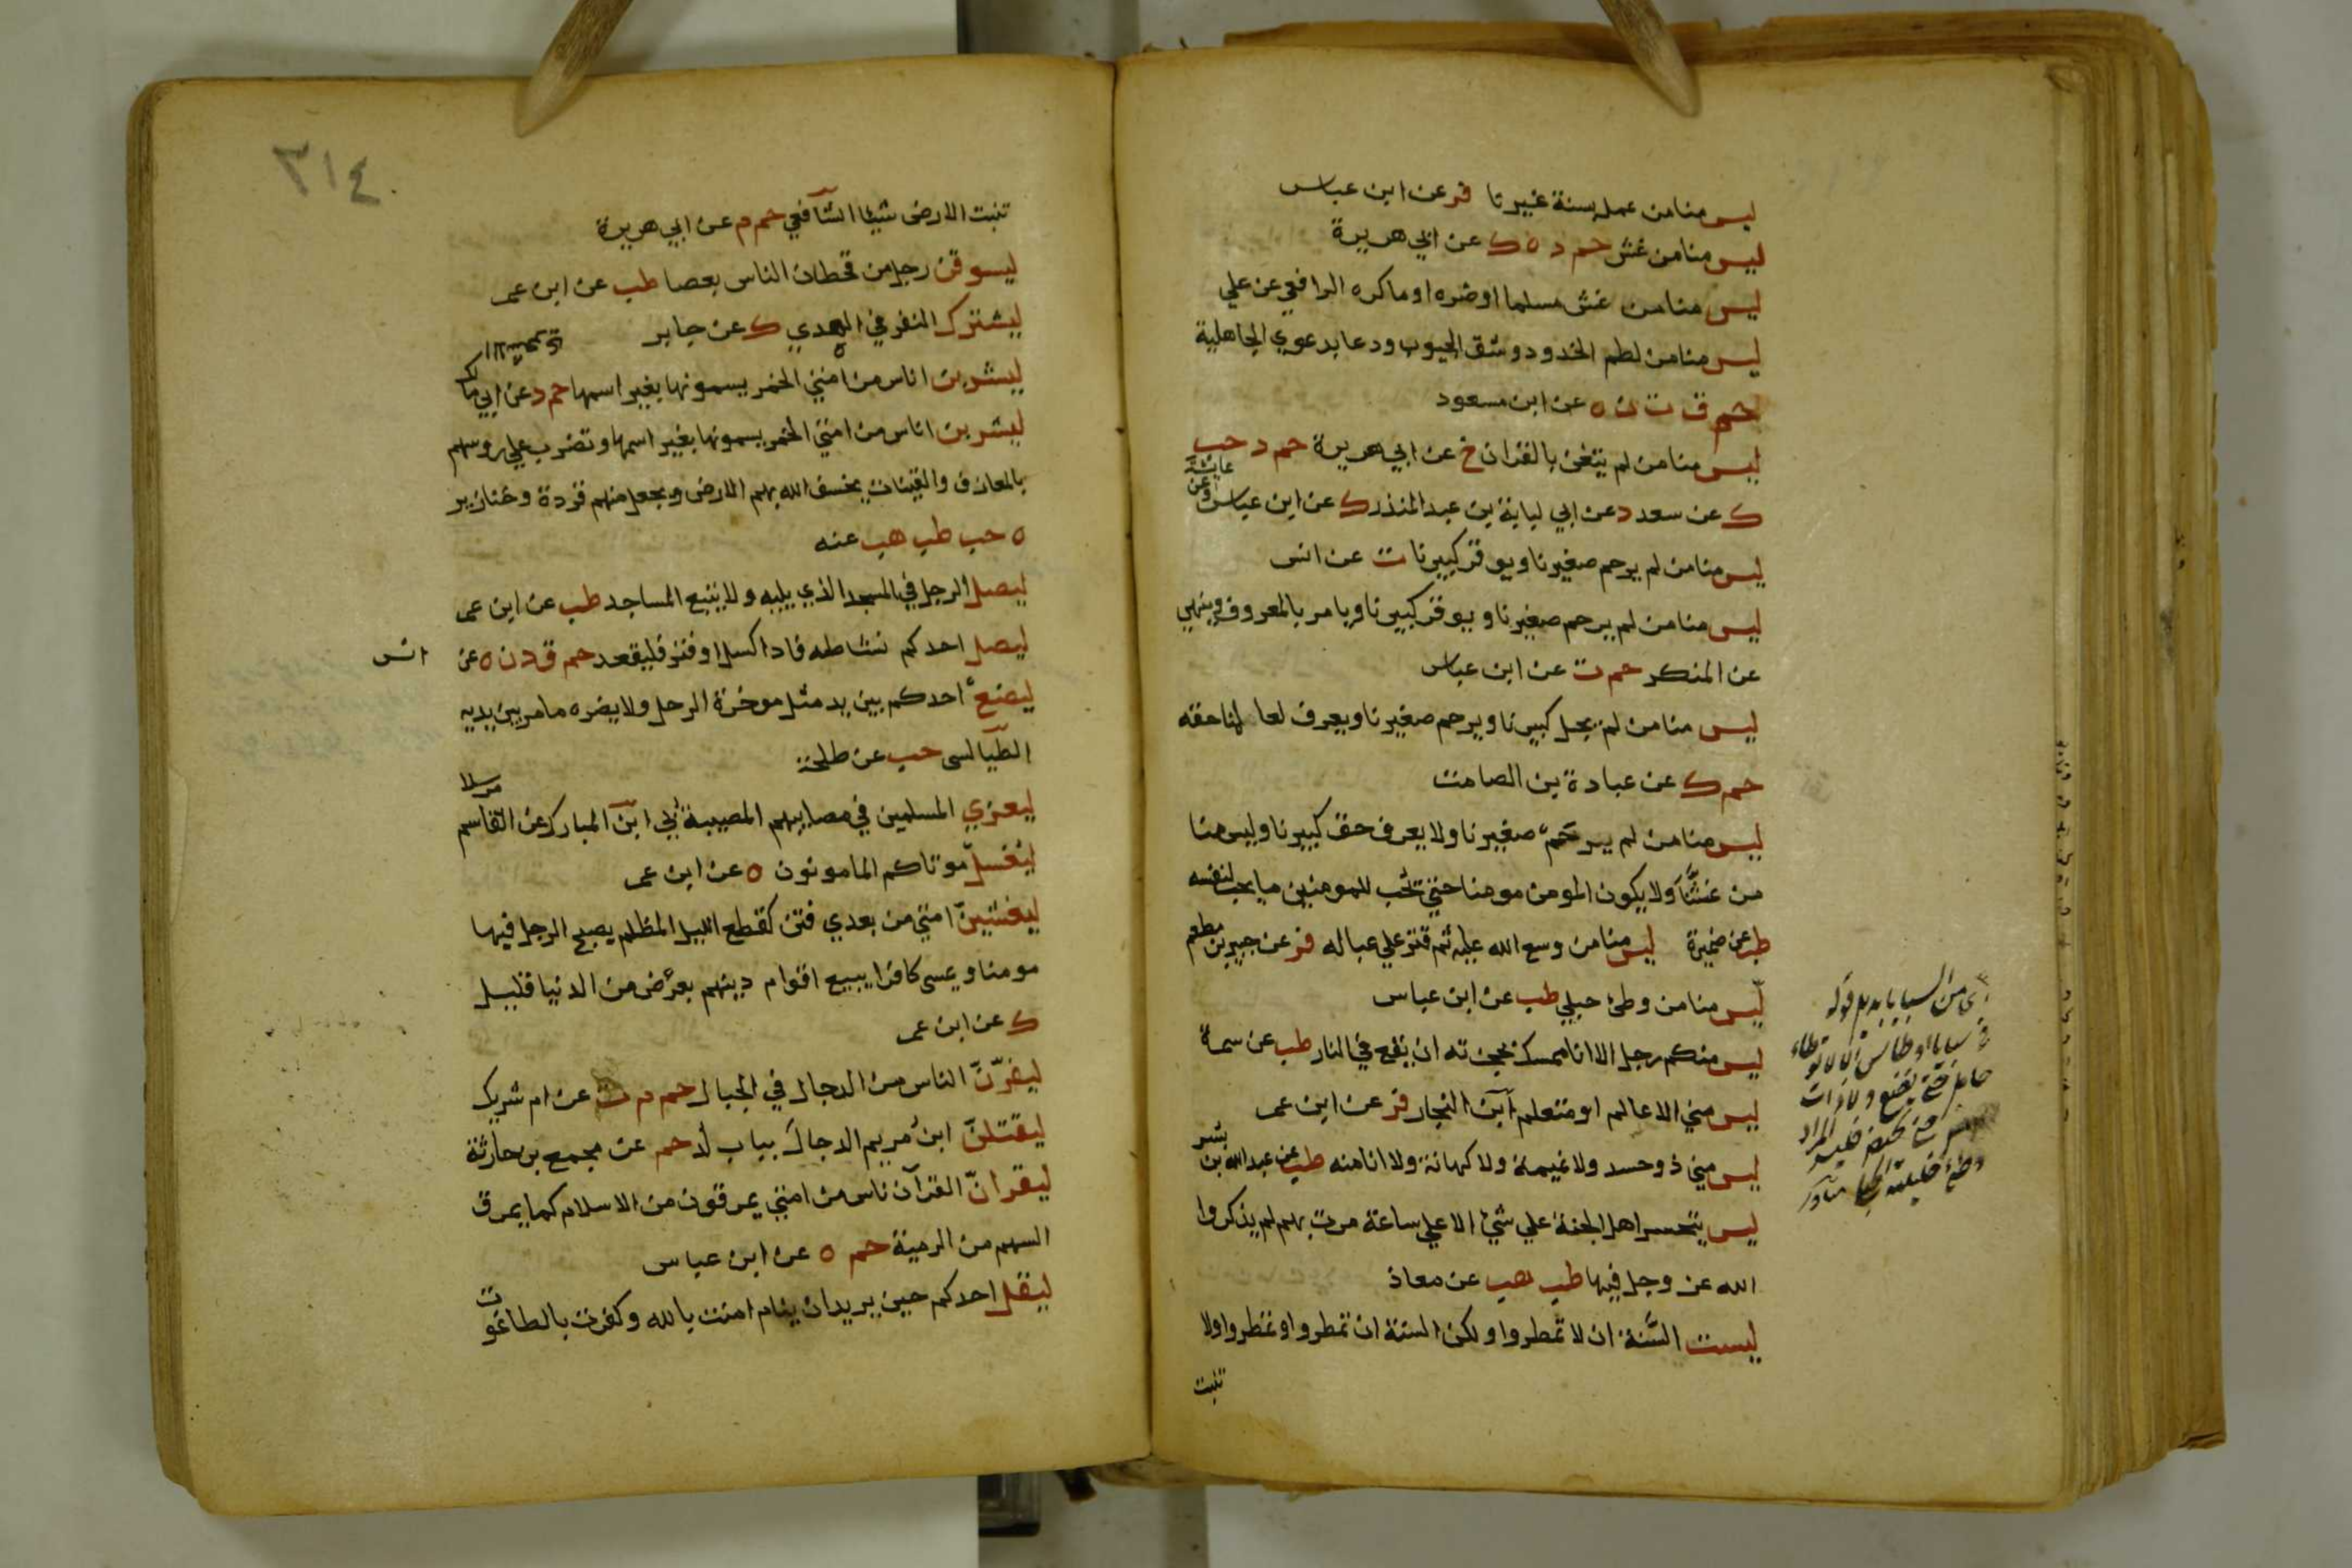 ليس منا من عمل بسنة غيرنا فر عن ابن عباس
ليس منا من غش حم د ه ك عن ابي هريرة
ليس منا من غش مسلما او ضره او ماكره الرافعي عن علي
ليس منا من لطم الخدود وشق الجيوب ودعا بدعوي الجاهلية
حم ق ت ن ه عن ابن مسعود
ليس منا من لم يتغن بالقران خ عن ابي هريرة حم د حب
ك عن سعد د عن ابي لبابة بن عبد المنذر ك عن ابن عباس وعن عايشة
ليس منا من لم يرحم صغيرنا ويوقر كبيرنا ت عن انس
ليس منا من لم يرحم صغيرنا ويوقر كبيرنا ويامر بالمعروف وينهي
عن المنكر حم ت عن ابن عباس
ليس منا من لم يجل كبيرنا ويرحم صغيرنا ويعرف لعالمنا حقه
حم ك عن عبادة بن الصامت
ليس منا من لم يرحم صغيرنا ولا يعرف حق كبيرنا وليس منا
من غشنا ولا يكون المومن مومنا حتي يحب للمومنين ما يحب لنفسه
طب عن ضميرة ليس منا من وسع الله عليه ثم قتر علي عياله فر عن جبير بن مطعم
ليس منا من وطئ حبلي طب عن ابن عباس
ليس منكم رجل الا انا ممسك بحجزته ان يقع في النار طب عن سمرة
ليس مني الا عالم او متعلم ابن النجار فر عن ابن عمر
ليس مني ذو حسد ولا نميمة ولا كهانة ولا انا منه طب عن عبد الله بن بسر
ليس يتحسر اهل الجنة علي شئ الا علي ساعة مرت بهم لم يذكروا
الله عز وجل فيها طب هب عن معاذ
ليست السنة ان لا تمطروا ولكن السنة ان تمطروا وتمطروا ولا
تنبت
اي من السبايا بدليل قوله
في سبايا اوطاس الا لا توطاء
حامل حتى تضع ولا ذات
٣١٤
تنبت الارض شيئا الشافعي حم م عن ابي هريرة
ليسوقن رجل من قحطان الناس بعصا طب عن ابن عمر
ليشترك النفر في الهدي ك عن جابر
ليشربن اناس من امتي الخمر يسمونها بغير اسمها حم د عن ابي مالك الاشعري
ليشربن اناس من امتي الخمر يسمونها بغير اسمها وتضرب علي روسهم
بالمعازف والقينات يخسف الله بهم الارض ويجعل منهم قردة وخنازير
ه حب طب هب عنه
ليصل الرجل في المسجد الذي يليه ولا يتبع المساجد طب عن ابن عمر
ليصل احدكم نشاطه فاذا كسل او فتر فليقعد حم ق د ن ه عن انس
ليضع احدكم بين يديه مثل موخرة الرحل ولا يضره ما مر بين يديه
الطيالسى حب عن طلحة
ليعزي المسلمين في مصايبهم المصيبة بي ابن المبارك عن القاسم مرسلا
ليغسل موتاكم المامونون ه عن ابن عمر
ليغشين امتي من بعدي فتن كقطع الليل المظلم يصبح الرجل فيها
مومنا ويمسى كافرا يبيع اقوام دينهم بعرض من الدنيا قليل
ك عن ابن عمر
ليفرن الناس من الدجال في الجبال حم م ت عن ام شريك
ليقتلن ابن مريم الدجال بباب لد حم عن مجمع بن حارثة
ليقران القرآن ناس من امتي يمرقون من الاسلام كما يمرق
السهم من الرمية حم ه عن ابن عباس
ليقل احدكم حين يريد ان ينام امنت بالله وكفرت بالطاغوت